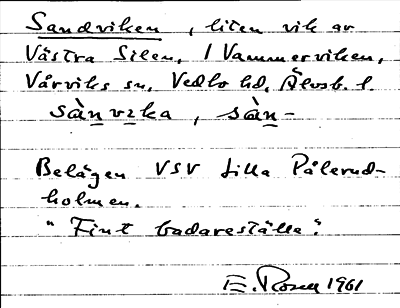 Sandviken, liten vik av
Västra Silen, I Vammerviken,
Vårviks sn, Vedbo hd, Älvsb. l.
sàn vika, sàn-
Belägen VSV Lilla Pålerud-
holmen.
"Fint badareställe".
E. Rosell 1961